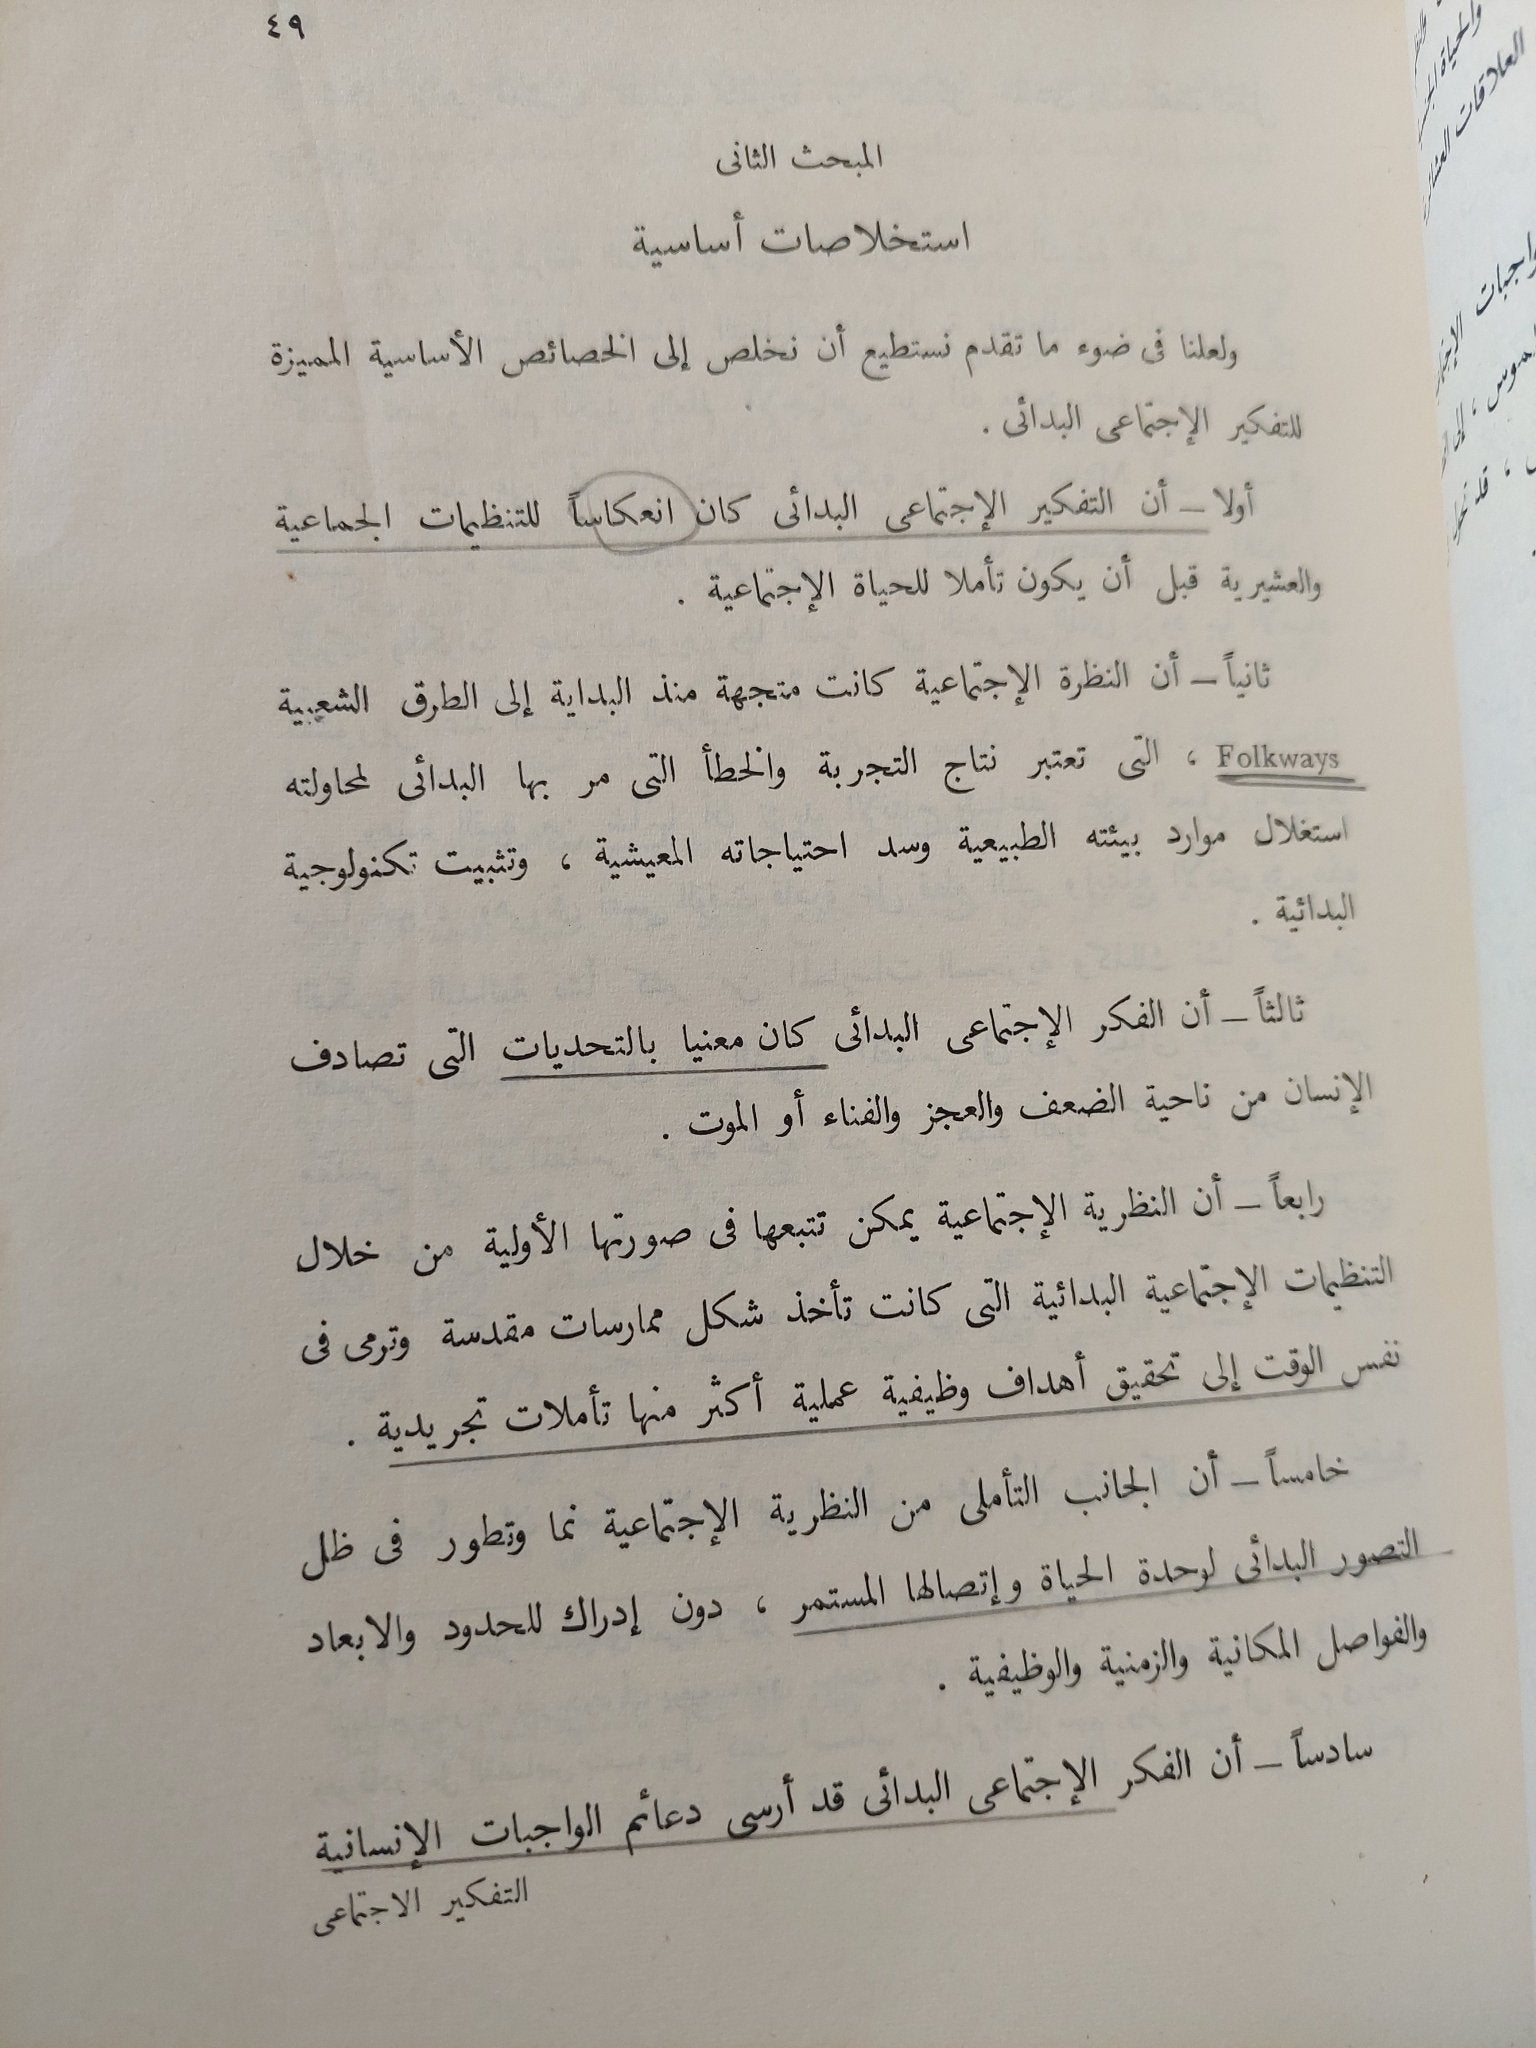 ٤٩
المبحث الثانى
استخلاصات أساسية
ولعلنا فى ضوء ما تقدم نستطيع أن نخلص إلى الخصائص الأساسية المميزة
للتفكير الإجتماعى البدائى .
أولا – أن التفكير الإجتماعى البدائى كان انعكاساً للتنظيمات الجماعية
والعشيرية قبل أن يكون تأملا للحياة الإجتماعية .
ثانياً – أن النظرة الإجتماعية كانت متجهة منذ البداية إلى الطرق الشعبية
Folkways ، التى تعتبر نتاج التجربة والخطأ التى مر بها البدائى لمحاولته
استغلال موارد بيئته الطبيعية وسد احتياجاته المعيشية ، وتثبيت تكنولوجية
البدائية .
ثالثاً – أن الفكر الإجتماعى البدائى كان معنيا بالتحديات التى تصادف
الإنسان من ناحية الضعف والعجز والفناء أو الموت .
رابعاً – أن النظرية الإجتماعية يمكن تتبعها فى صورتها الأولية من خلال
التنظيمات الإجتماعية البدائية التى كانت تأخذ شكل ممارسات مقدسة وترمى فى
نفس الوقت إلى تحقيق أهداف وظيفية عملية أكثر منها تأملات تجريدية .
خامساً – أن الجانب التأملى من النظرية الإجتماعية نما وتطور فى ظل
التصور البدائى لوحدة الحياة وإتصالها المستمر ، دون إدراك للحدود والابعاد
والفواصل المكانية والزمنية والوظيفية .
سادساً – أن الفكر الإجتماعى البدائى قد أرسى دعائم الواجبات الإنسانية
التفكير الاجتماعى
العلاقات